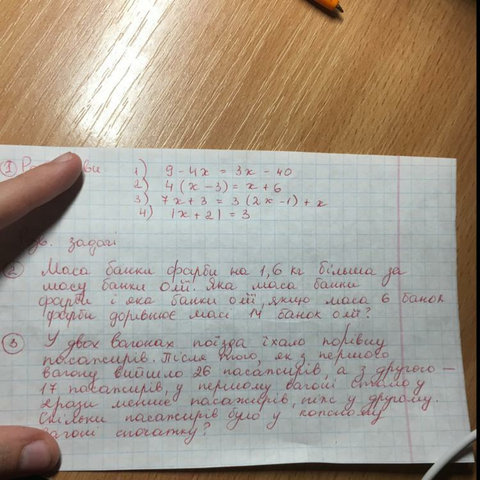 1) 9 - 4x = 3x - 40
2) 4(x - 3) = x + 6
3) 7x + 3 = 3(2x - 1) + x
4) |x + 2| = 3
задачі
② Маса банки фарби на 1,6 кг більша за
масу банки олії. Яка маса банки
фарби і яка банки олії, якщо маса 6 банок
фарби дорівнює масі 14 банок олії?
③ У двох вагонах поїзда їхало порівну
пасажирів. Після того, як з першого
вагону вийшло 26 пасажирів, а з другого —
17 пасажирів, у першому вагоні стало у
2 рази менше пасажирів, ніж у другому.
Скільки пасажирів було у кожному
вагоні спочатку?